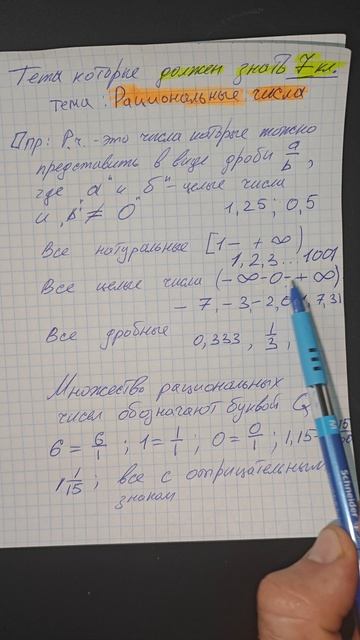 Темы которые должен знать 7 кл.
тема: Рациональные числа
Опр: Р.ч. - это числа которые можно
представить в виде дроби a/b,
где "a" и "б" - целые числа
и "b" ≠ 0"
1,25; 0,5
Все натуральные [1 - +∞)
1,2,3...1001
Все целые числа (-∞-0-+∞)
- 7, -3 -2, 7,31
Все дробные 0,333, 1/3,
Множество рациональных
чисел обозначают буквой Q
6 = 6/1; 1 = 1/1; 0 = 0/1; 1,15
1 1/15; все с отрицательным
знаком
Schneider